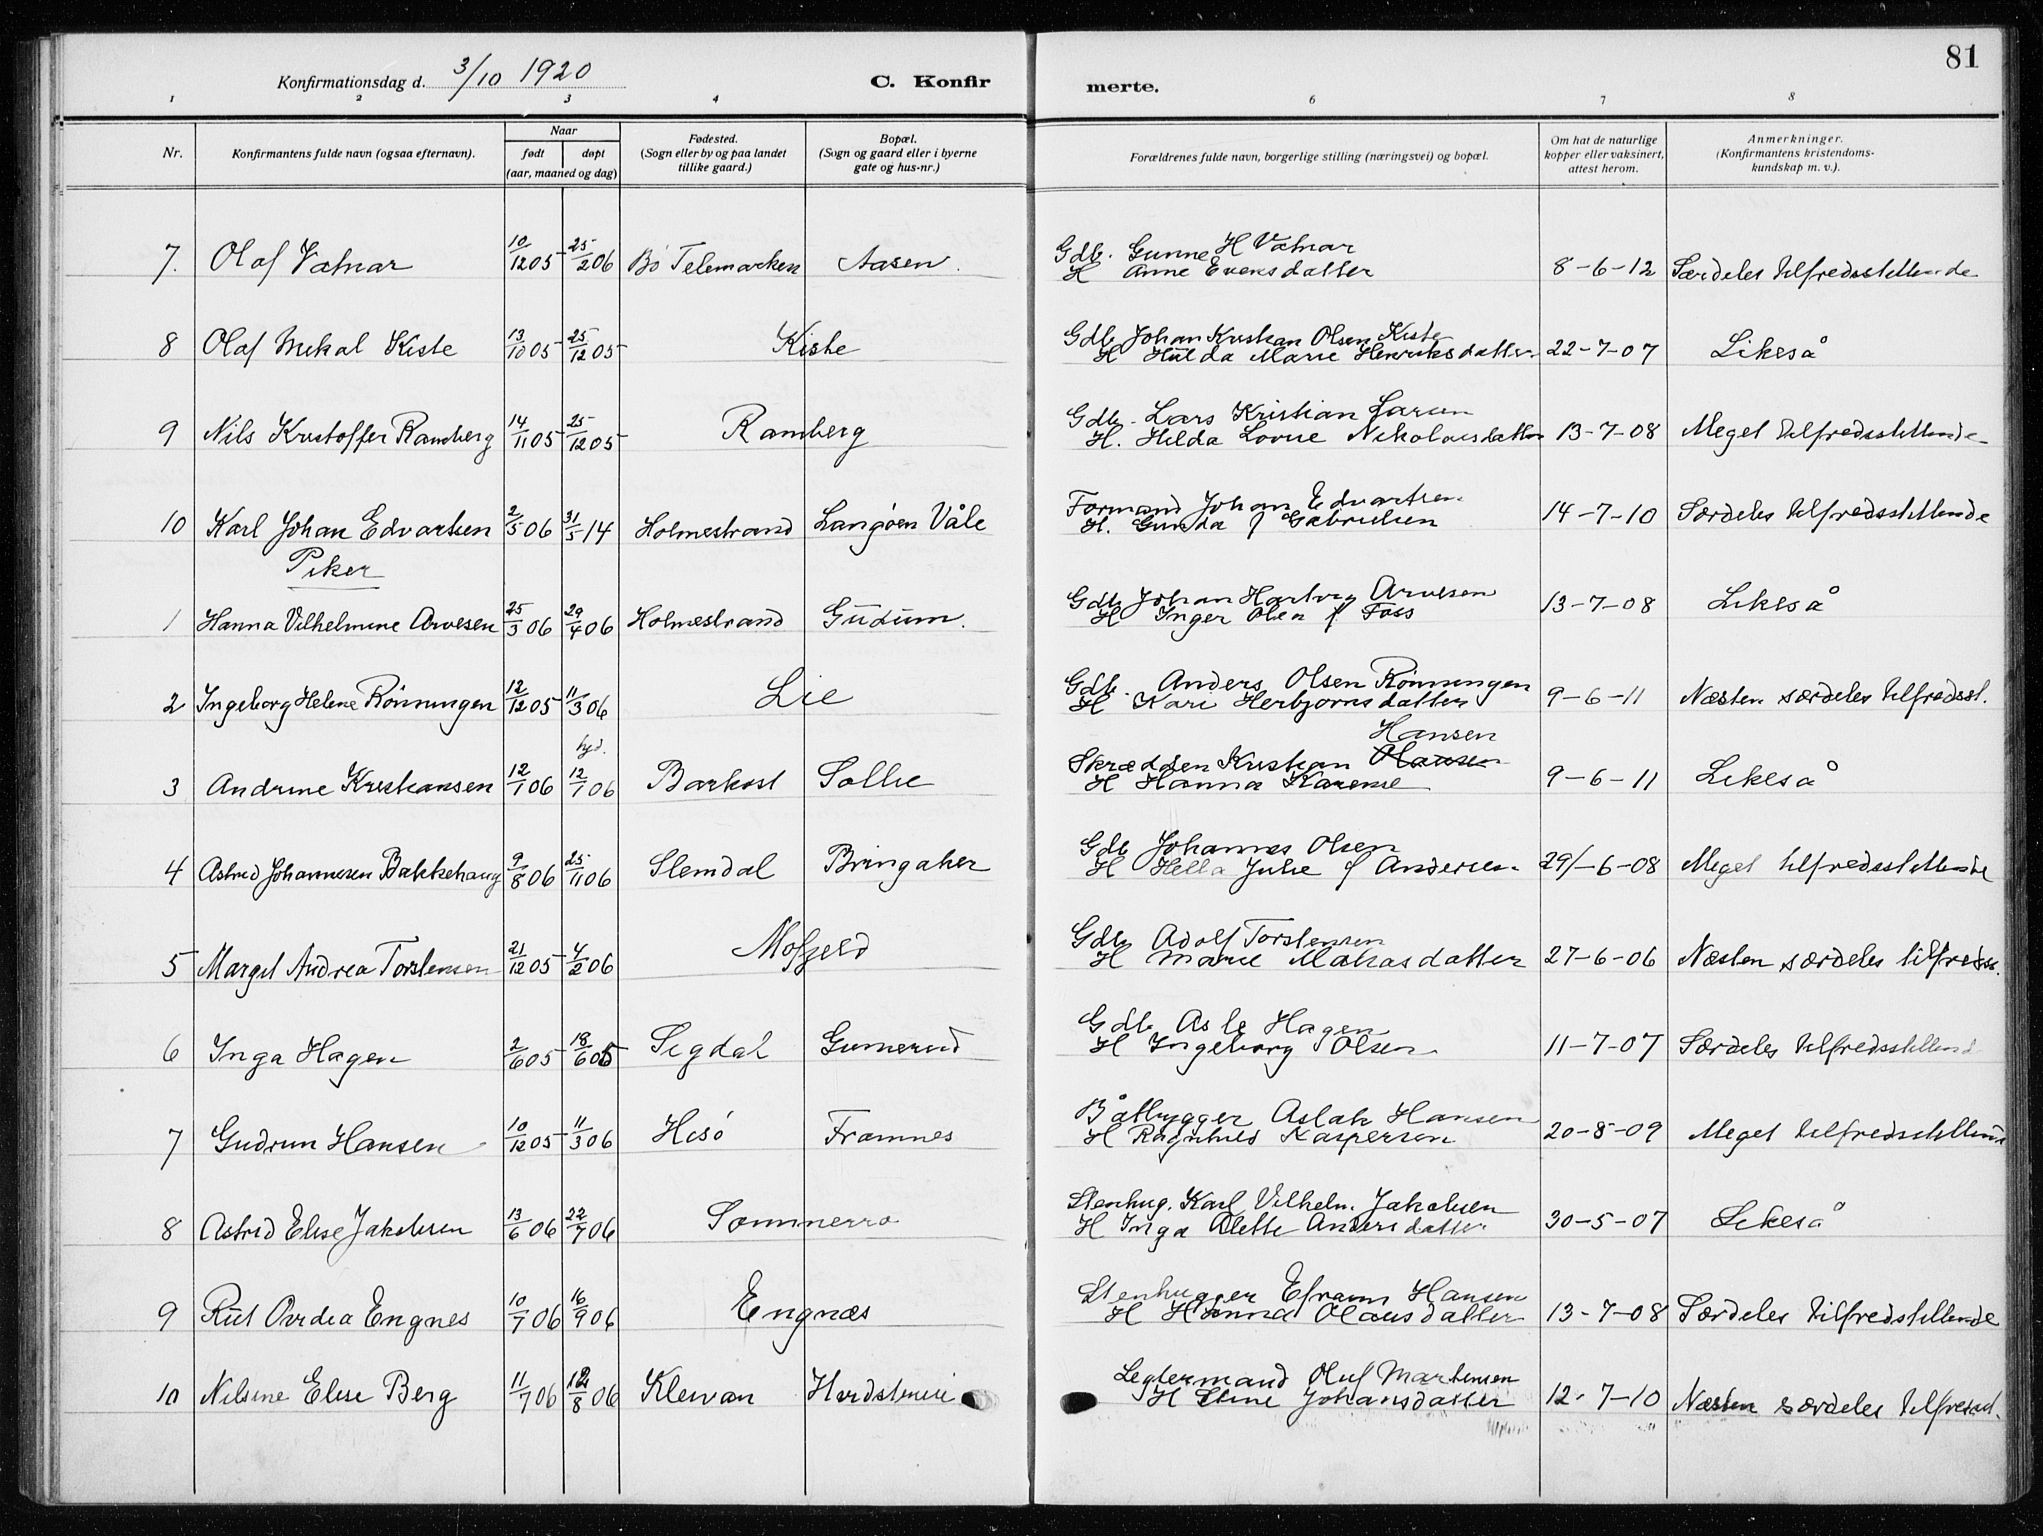 81
Konfirmationsdag d. 3/10 1920 C. Konfirmerte.
1 2 3 4 6 7 8
Nr. Konfirmantens fulde navn (ogsaa efternavn). Naar født døpt (aar, maaned og dag) Fødested. (Sogn eller by og paa landet tillike gaard.) Bopæl. (Sogn og gaard eller i byerne gate og hus-nr.) Forældrenes fulde navn, borgerlige stilling (næringsvei) og bopæl. Om hat de naturlige kopper eller vaksinert, attest herom. Anmerkninger. (Konfirmantens kristendomskundskap m. v.).
7. Olaf Vatnar 10/12 05 25/2 06 Bö Telemarken Aasen. Gdb. Gunne H Vatnar
H Anne Evensdatter 8-6-12 Særdeles tilfredsstillende
8 Olaf Mikal Kiste 13/10 05 25/12 05 Kiste Gdb Johan Kristian Olsen Kiste
H Hulda Marie Henriksdatter 22-7-07 Likeså
9 Nils Kristoffer Ramberg 14/11 05 25/12 05 Ramberg Gdb. Lars Kristian Larsen
H. Hilda Lovise Nikolaisdatter 13-7-08 Meget tilfredsstillende
10 Karl Johan Edvartsen 2/5 06 31/5 14 Holmestrand Langøen Våle Formand Johan Edvartsen
H. Gunda f Gabrielsen 14-7-10 Særdeles tilfredsstillende
Piker
1 Hanna Vilhelmine Arvesen 25/3 06 29/4 06 Holmestrand Gudum. Gdb Johan Hartvig Arvesen
H Inger Olea f Foss 13-7-08 Likeså
2 Ingeborg Helene Rönningen 12/12 05 11/3 06 Lie Gdb. Anders Olsen Rönningen
H Kari Herbjornsdatter 9-6-11 Næsten særdeles tilfredsst.
3 Andrine Kristiansen 12/1 06 hjd. 12/1 06 Barkost Sollie Skrædder Kristian Hansen
H Hanna Karense 9-6-11 Likeså
4 Astrid Johannesen Bakkehaug 9/8 06 25/11 06 Slemdal Bringaker Gdb Johannes Olsen
H Hella Julie f Andersen 29/-6-08 Meget tilfredsstillende
5 Margit Andrea Torstensen 21/12 05 4/2 06 Mofjeld Gdb Adolf Torstensen
H Marie Makasdatter 27-6-06 Næsten særdeles tilfredss.
6 Inga Hagen 2/6 05 18/6 05 Sigdal Gumerud Gdb Asle Hagen
H Ingeborg Olsen 11-7-07 Særdeles tilfredsstillend
7 Gudrun Hansen 10/12 05 11/3 06 Hisö Framnes Båtbygger Aslak Hansen
H Ragnhild Kaspersen 20-8-09 Meget tilfredsstillende
8 Astrid Elise Jakobsen 13/6 06 22/7 06 Sommerro Stenhug. Karl Vilhelm Jakobsen
H Inga Alette Andersdatter 30-5-07 Likeså
9 Rut Ovidia Engnes 10/7 06 16/9 06 Engnæs Stenhugger Efraim Hansen
H Hanna Olausdatter 13-7-08 Særdeles tilfredsstillende
10 Nilsine Elise Berg 11/7 06 12/8 06 Klevan Legtermand Oluf Martinsen
H Stine Johansdatter 12-7-10 Næsten særdeles tilfredsst.